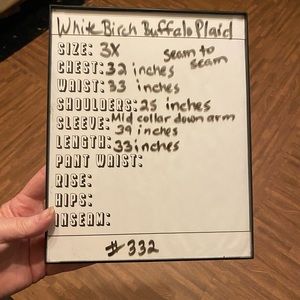 White Birch Buffalo Plaid
SIZE: 3X seam to seam
CHEST: 32 inches
WAIST: 33 inches
SHOULDERS: 25 inches
SLEEVE: Mid collar down arm
39 inches
LENGTH: 33 inches
PANT WAIST:
RISE:
HIPS:
INSEAM:
# 332